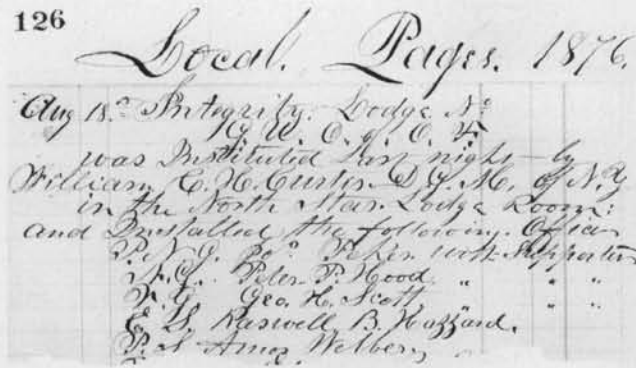 126
Local. Pages. 1876.
Aug 18th Integrity. Lodge No
G. U. O. of O. F.
was Instituted Last night by
William C. H. Curtis D. G. M. of N.Y
in the North Star Lodge Room:
and Installed the following. Officers
P. N. G. with Supporters
N. G. Peter P. Wood " " "
V. G. Geo. H. Scott " " "
E. S. Raswell B. Hazzard.
P. S Amos Wilbery